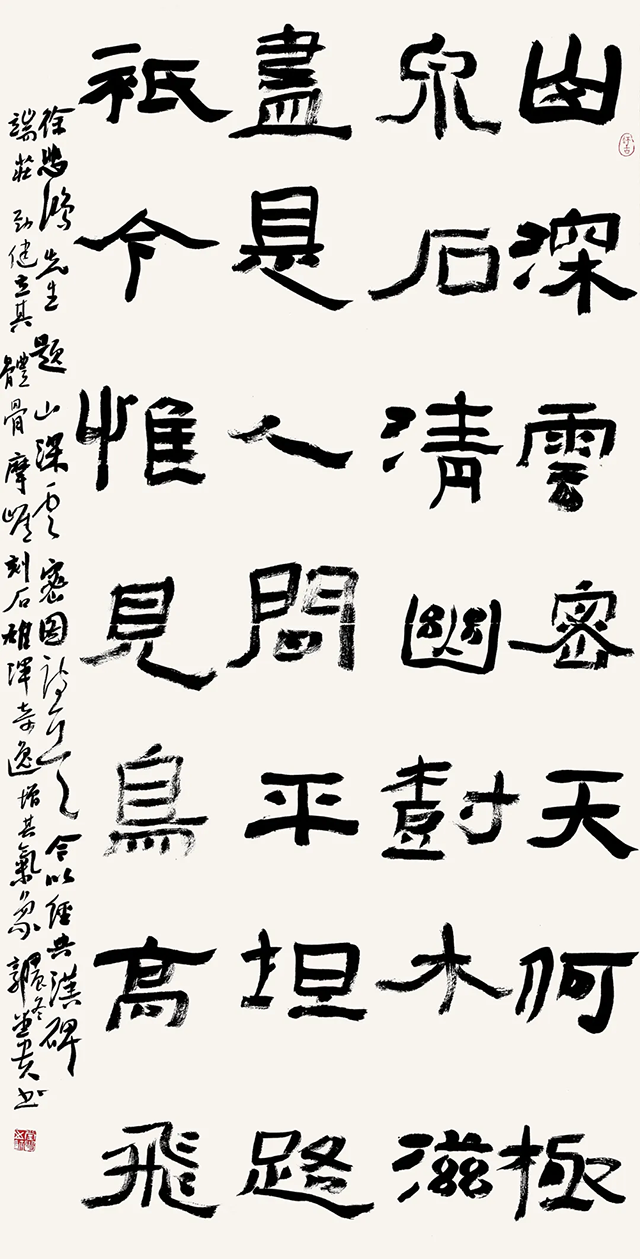 山深雲密天何極
泉石清幽樹木滋
盡是人間平坦路
祇今惟見鳥高飛
徐悲鴻先生題山深雲密圖詩一首之今以經典漢碑
端莊勁健立其體骨摩崖刻石雄渾奇逸增其氣象